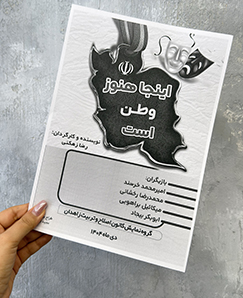 اینجا هنوز
وطن
است
نویسنده و کارگردان:
رضا زهکنی
بازیگران:
امیرمحمد خرسند
محمدرضا رخشانی
میکائیل براهویی
ابوبکر بیجاد
گروه نمایش کانون اصلاح و تربیت زاهدان
دی ماه ۱۴۰۴